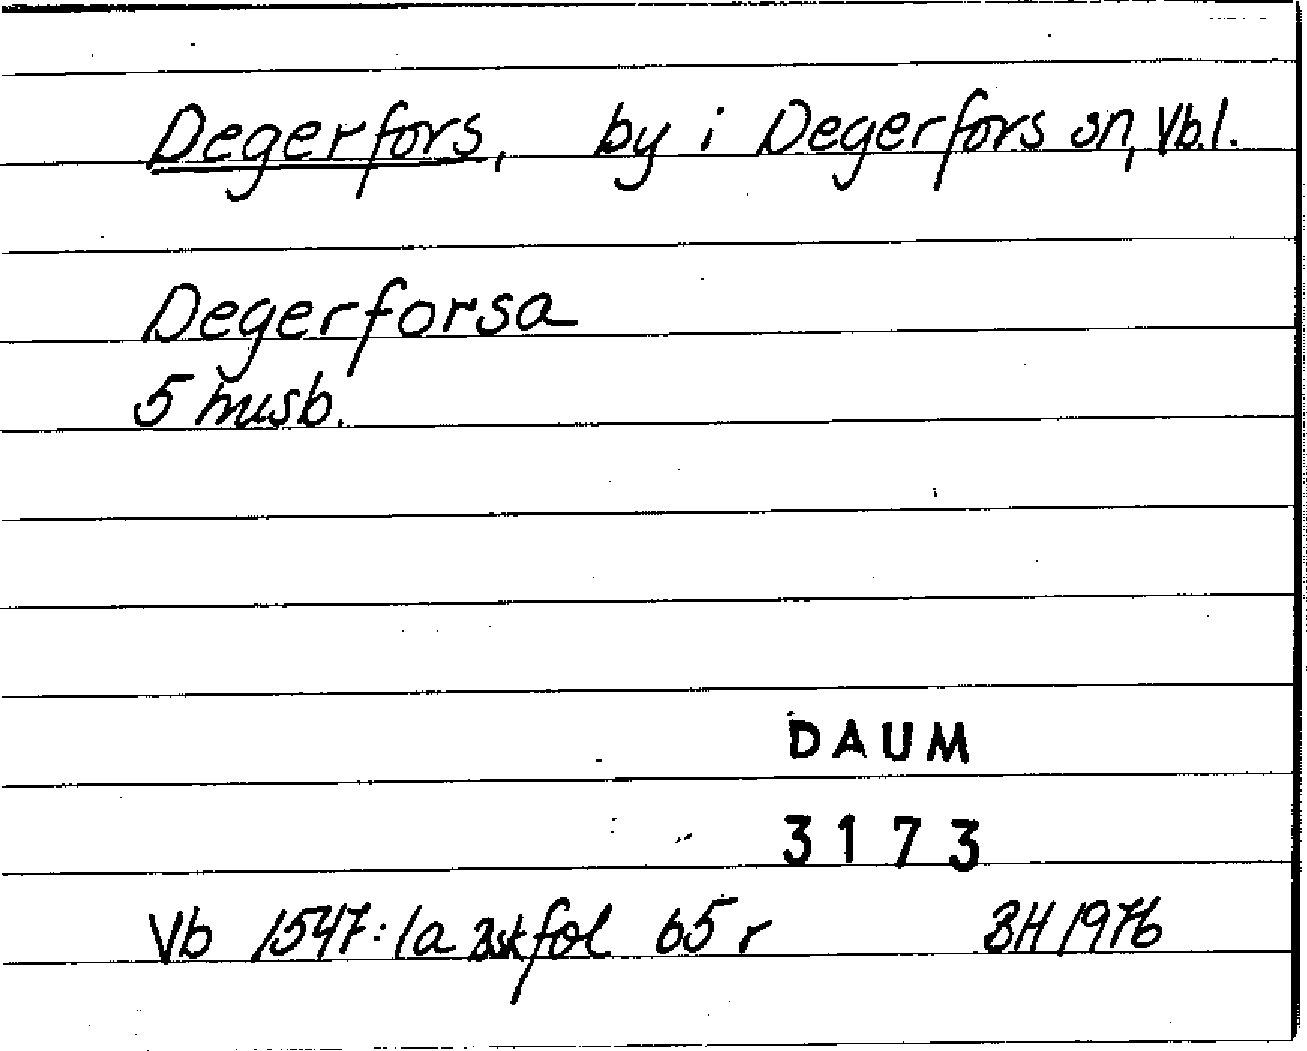 Degerfors, by i Degerfors sn, Vb.l.
Degerforsa
5 husb.
DAUM
3173
Vb 1547:1a Bskfol 65 r BH 1976